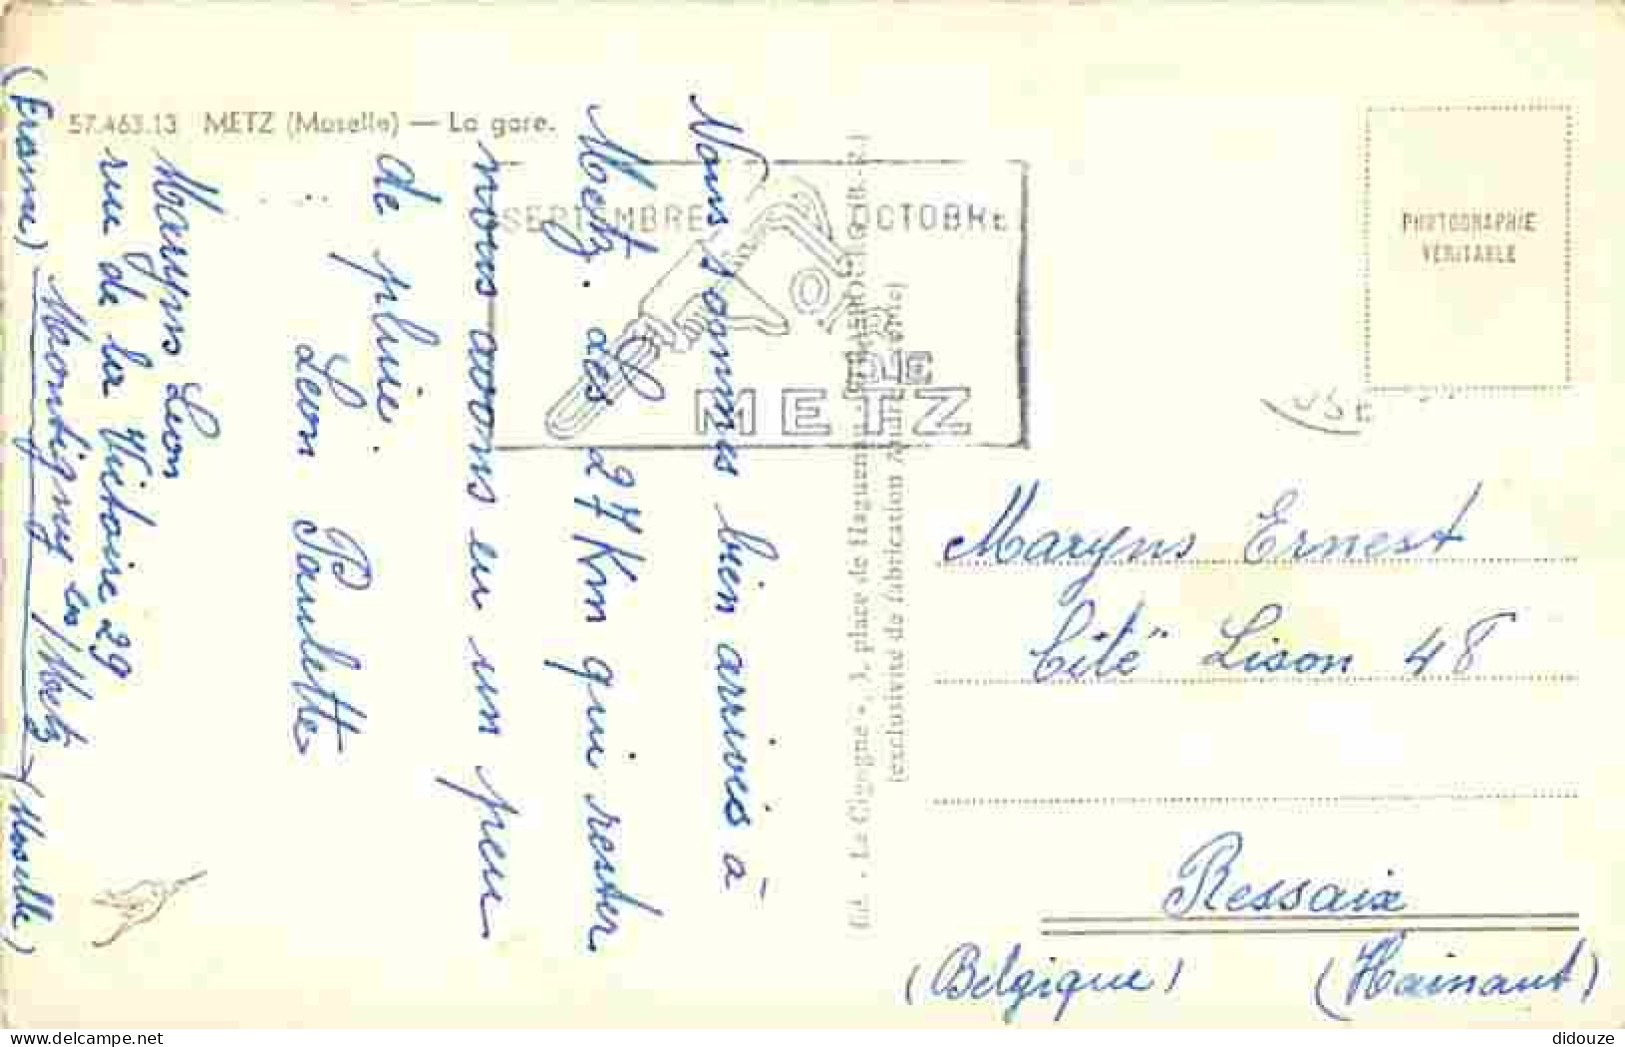 57.463.13 METZ (Moselle) — La gare.
Nous sommes bien arrivés à
Metz. des 27 Km qui rester
nous avons eu un peu
de pluie.
Leon Paulette
Maryns Leon
rue de la Victoire 29
Montigny les/Metz (Moselle)
(France)
SEPTEMBRE OCTOBRE
DE
METZ
Ed. « La Cigogne », 3, place de Haguenau
(exclusivité de fabrication
PHOTOGRAPHIE
VÉRITABLE
Maryns Ernest
Cité Lison 48
Ressaix
(Belgique) (Hainaut)
didouze